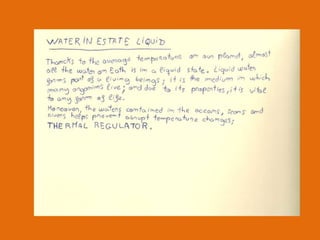 WATER IN ESTATE LIQUID
Thancks to the average temperature on our planet, almost
all the water on Eath is im a liquid state. Liquid water
forms part of a living beings; it is the medium in which
many organisms live; and due to its properties, it is vital
to any form of life.
Moreover, the waters contained in the oceans, seas and
rivers helps prevent abrupt temperature changes;
THERMAL REGULATOR.